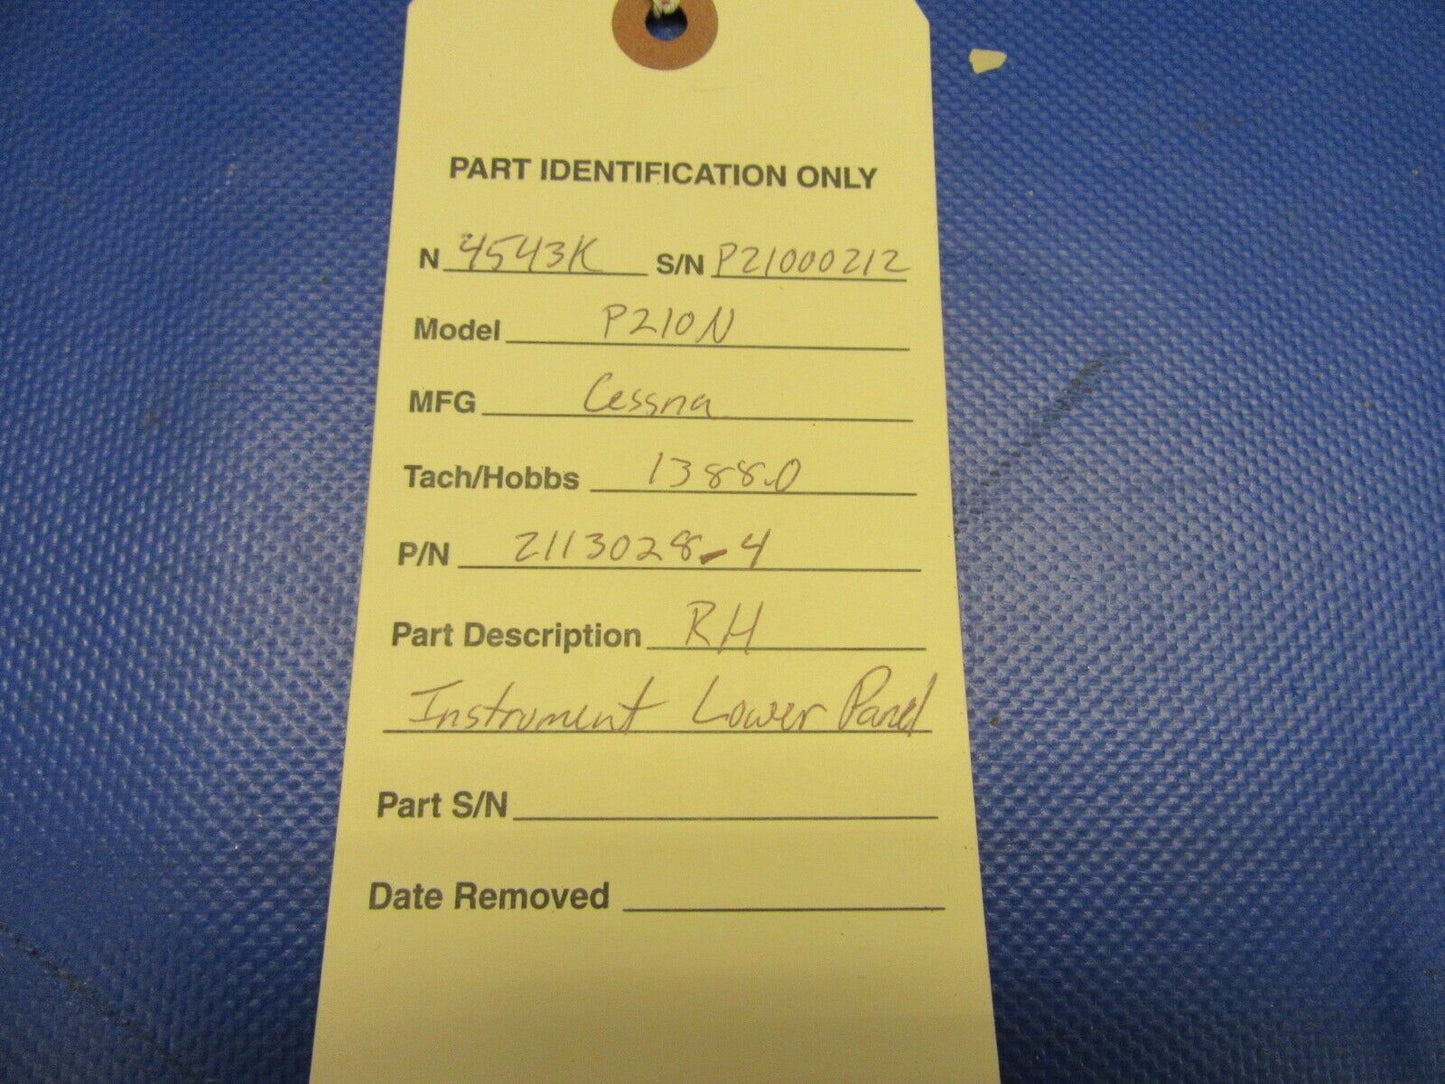 PART IDENTIFICATION ONLY
N 4543K S/N P21000212
Model P210N
MFG Cessna
Tach/Hobbs 1388.0
P/N 2113028-4
Part Description RH
Instrument Lower Panel
Part S/N
Date Removed